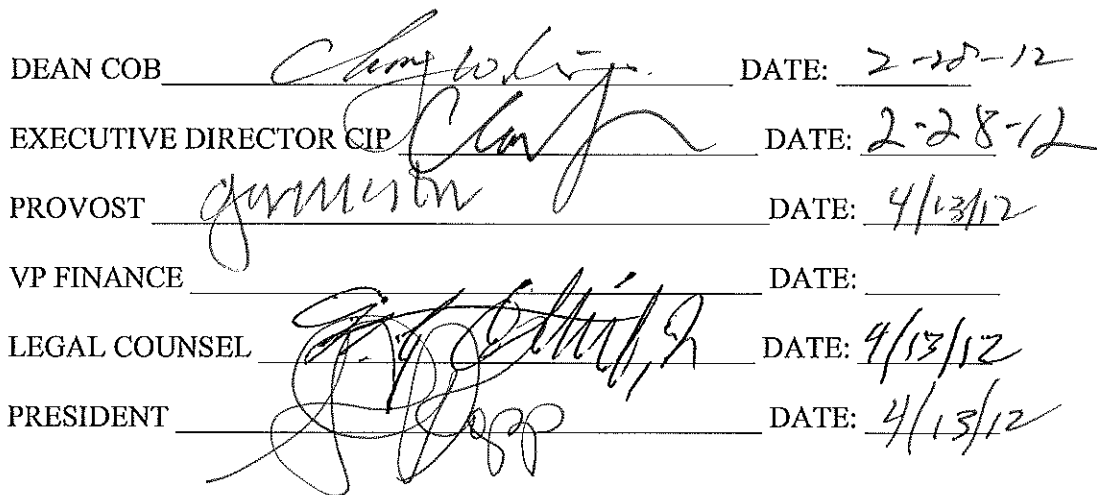 DEAN COB DATE: 2-28-12
EXECUTIVE DIRECTOR CIP DATE: 2-28-12
PROVOST DATE: 4/13/12
VP FINANCE DATE:
LEGAL COUNSEL DATE: 4/13/12
PRESIDENT DATE: 4/13/12